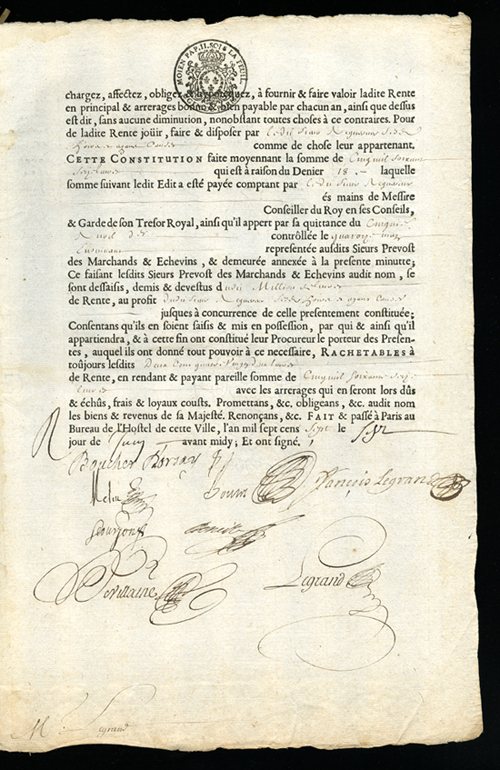 MOYEN PAP. II. SOLS LA FEUIL
chargez, affectez, obligez & hypotequez, à fournir & faire valoir ladite Rente
en principal & arrerages bonne & bien payable par chacun an, ainsi que dessus
est dit, sans aucune diminution, nonobstant toutes choses à ce contraires. Pour
de ladite Rente joüir, faire & disposer par ledit sieur
comme de chose leur appartenant.
CETTE CONSTITUTION faite moyennant la somme de Cinq mil soixante
qui est à raison du Denier 18. laquelle
somme suivant ledit Edit a esté payée comptant par ledit sieur
és mains de Messire
Conseiller du Roy en ses Conseils,
& Garde de son Tresor Royal, ainsi qu'il appert par sa quittance du
controllée le
representée ausdits Sieurs Prevost
des Marchands & Echevins, & demeurée annexée à la presente minutte;
Ce faisant lesdits Sieurs Prevost des Marchands & Echevins audit nom, se
sont dessaisis, demis & devestus dudit Million de livres
de Rente, au profit dudit sieur
jusques à concurrence de celle presentement constituée;
Consentans qu'ils en soient saisis & mis en possession, par qui & ainsi qu'il
appartiendra, & à cette fin ont constitué leur Procureur le porteur des Presen-
tes, auquel ils ont donné tout pouvoir à ce necessaire, RACHETABLES à
toûjours lesdits Deux cens quatre vingts livres
de Rente, en rendant & payant pareille somme de Cinq mil soixante
livres avec les arrerages qui en seront lors dûs
& échûs, frais & loyaux cousts. Promettans, &c. obligeans, &c. audit nom
les biens & revenus de sa Majesté. Renonçans, &c. FAIT & passé à Paris au
Bureau de l'Hostel de cette Ville, l'an mil sept cens Sept le
jour de avant midy; Et ont signé.
Boucher
François Legrand
Legrand
Legrand